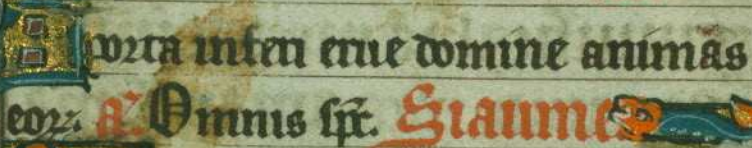 A porta inferi erue domine animas
eoꝝ. a᷎. Omnis sp̅c. Siaumes